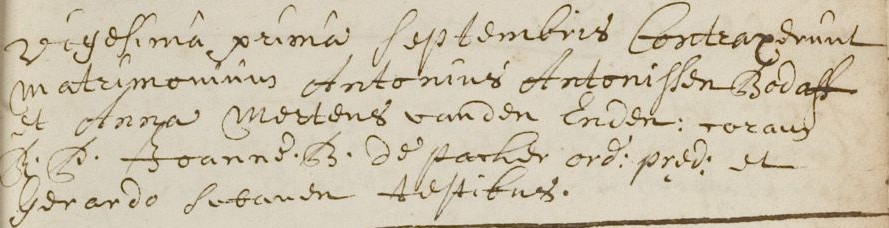 Vigesima prima septembris Contraxerunt
Matrimonium Antonius Antonissen Bodaff
et Anna Mertens vanden Enden: coram
R. P. Joanne. B. de pacher ord: pred: et
Gerardo testibus.